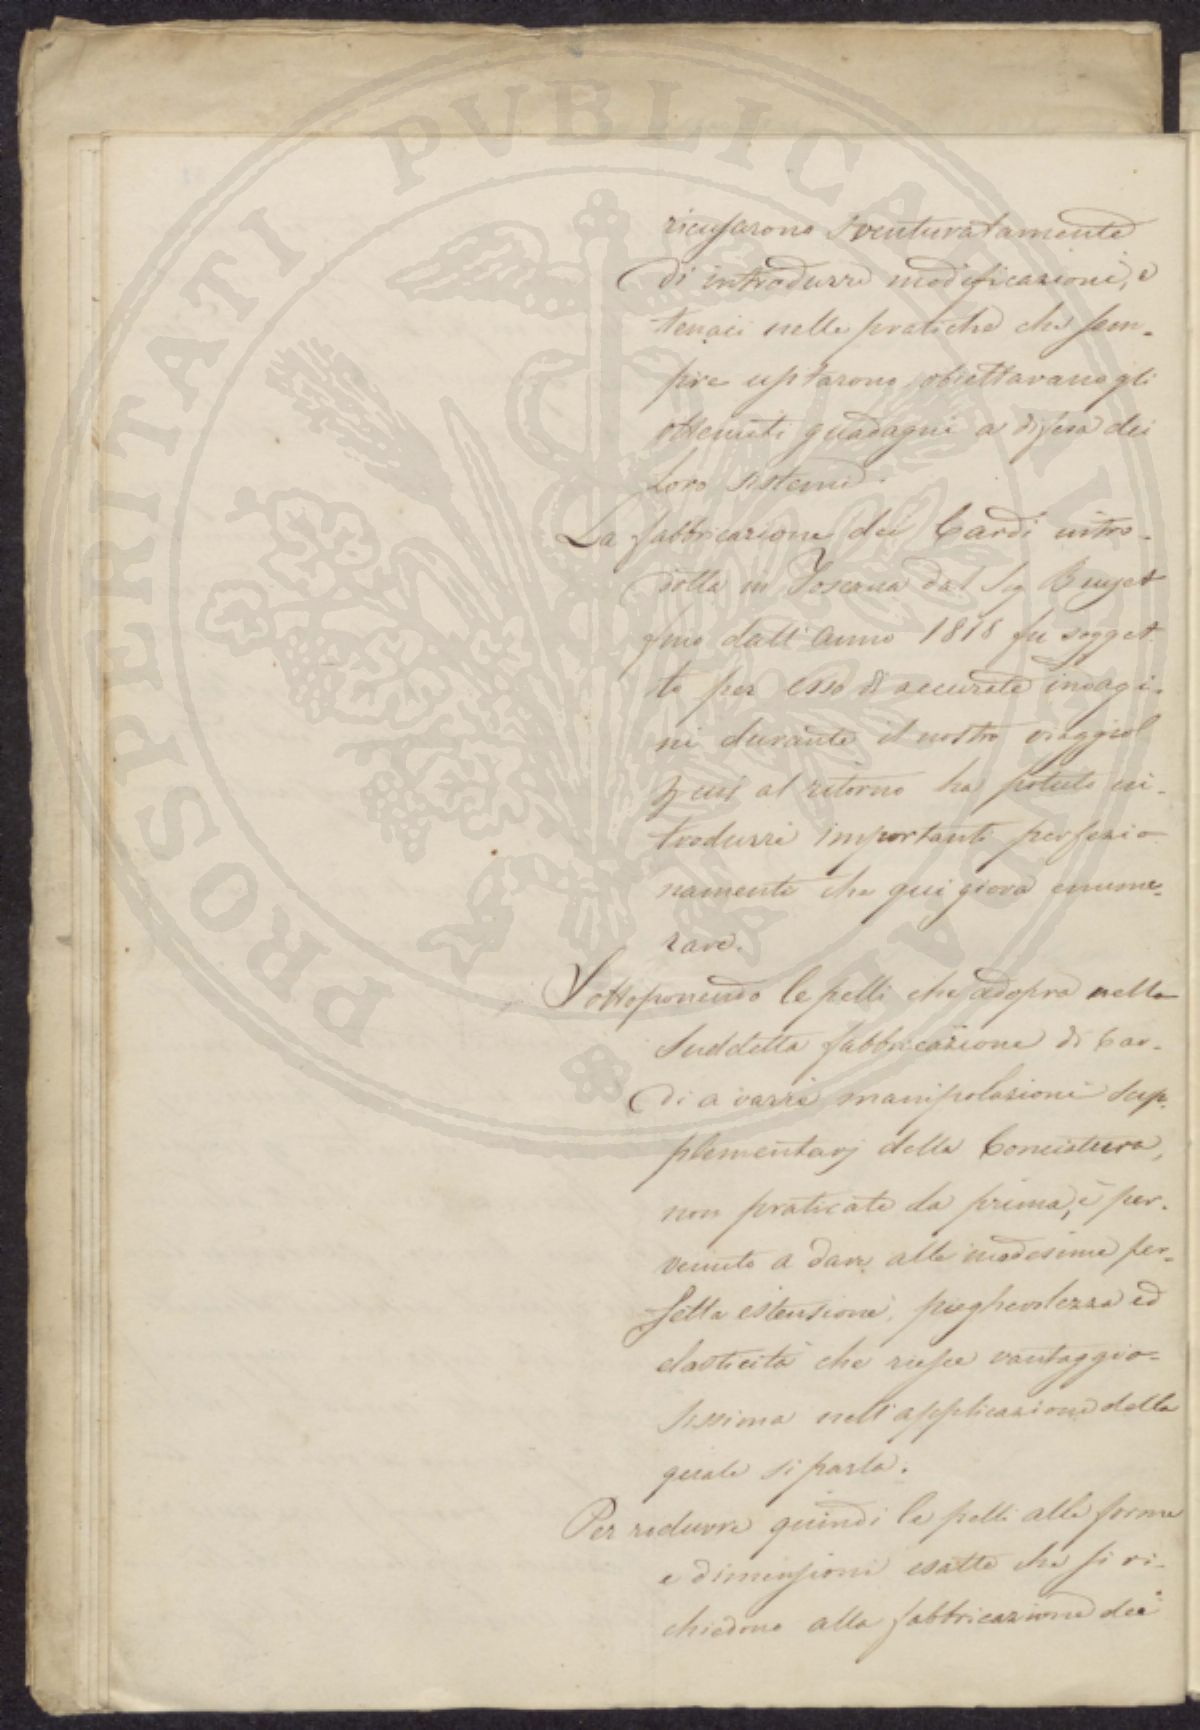 ricusarono sventuratamente
di introdurre modificazioni, e
tenaci nelle pratiche che sem-
pre usitarono, obiettavano gli
ottenuti guadagni a difesa dei
loro sistemi.
La fabbricazione dei Cardi intro-
dotta in Toscana dal Sig Bujet
fino dall'anno 1818 fu sogget-
to per esso di accurate indagi-
ni durante il nostro viaggio
al ritorno ha potuto in-
trodurre importanti perfezio-
namenti che qui giova enume-
rare.
Sottoponendo le pelli che adopra nella
suddetta fabbricazione di Car-
di a varie manipolazioni sup-
plementarj della Conciatura,
non praticate da prima, è per-
venuto a dare alle medesime per-
fetta estensione, pieghevolezza ed
elasticità che riesce vantaggio-
sissima nell'applicazione della
quale si parla.
Per ridurre quindi le pelli alle forme
e dimensioni esatte che si ri-
chiedono alla fabbricazione dei
PROSPERITATI PVBLICAE AVGENDAE